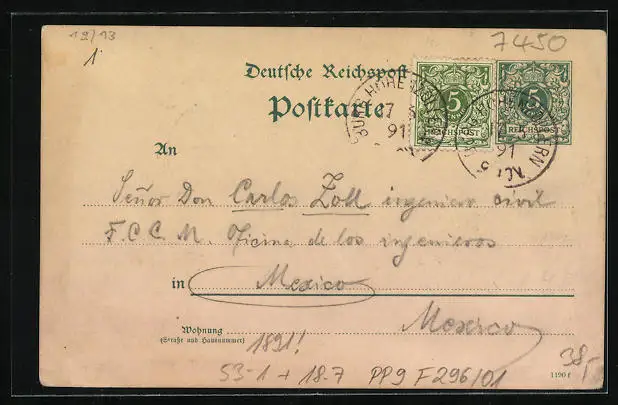 12/13
1
7450
Deutsche Reichspost
Postkarte
5
REICHSPOST
5
REICHSPOST
BURG HOHENZOLLERN
17 5
91
91
An
Señor Don Carlos Zoll ingeniero civil
F.C.C.M. Oficina de los ingenieros
in Mexico
Mexico
Wohnung
(Straße und Hausnummer)
1891!
38,-
S3-1 + 18-7 PP9 F296/01
1190 f